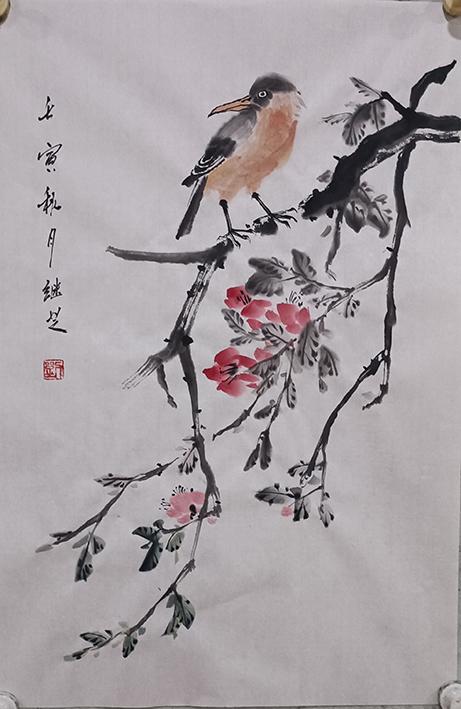 壬寅秋月继芝